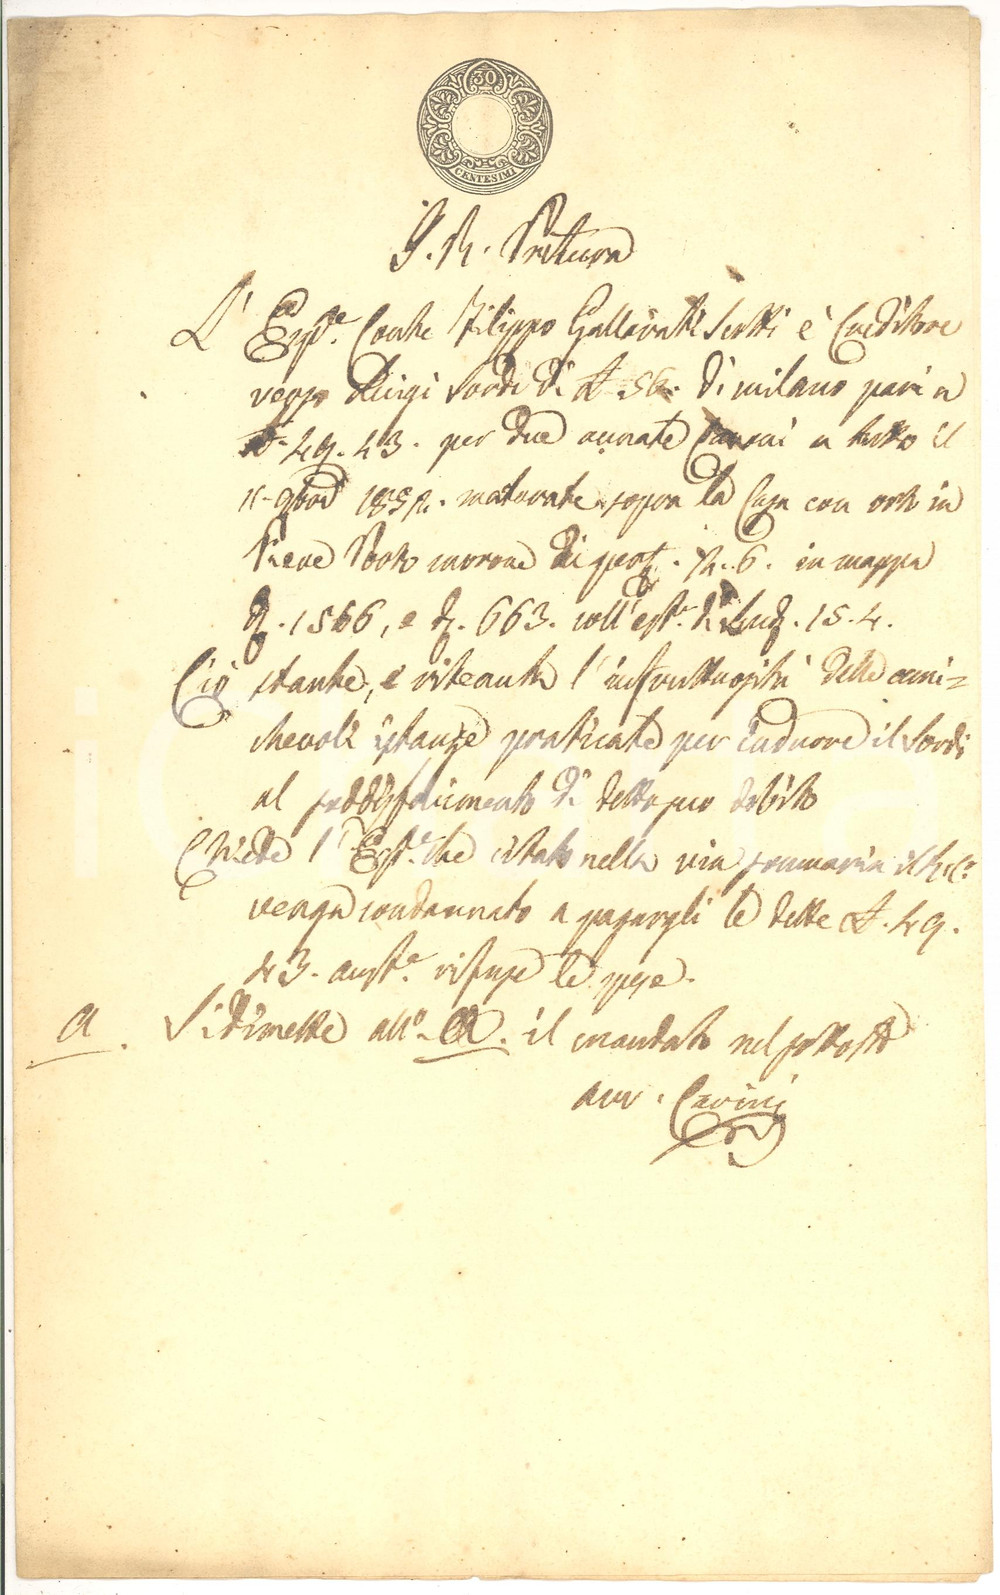 30
CENTESIMI
I. R. Pretura
L' Esp.e Conte Filippo Gallarati Scotti è Creditore
verso Luigi Sordi di £ 56. di milano pari a
£. 49. 43. per due annate Canoni a tutto il
11 9bre 1852. maturate sopra la Casa con orto in
Pieve Porto morone di pert. 12. 6. in mappa
N. 1566, e N. 663. coll'est.o di Scud. 15. 4.
Ciò stante, e ritenuta l'infruttuosità delle ami=
chevoli istanze praticate per indurre il Sordi
al soddisfacimento di detto suo debito
Chiede l'Esp.e che citato nella via sommaria il R.C.
venga condannato a pagargli le dette £. 49.
43. aust.e rifuse le spese.
a Si dimette all.o A. il mandato nel sottost.o
avv. Cavini